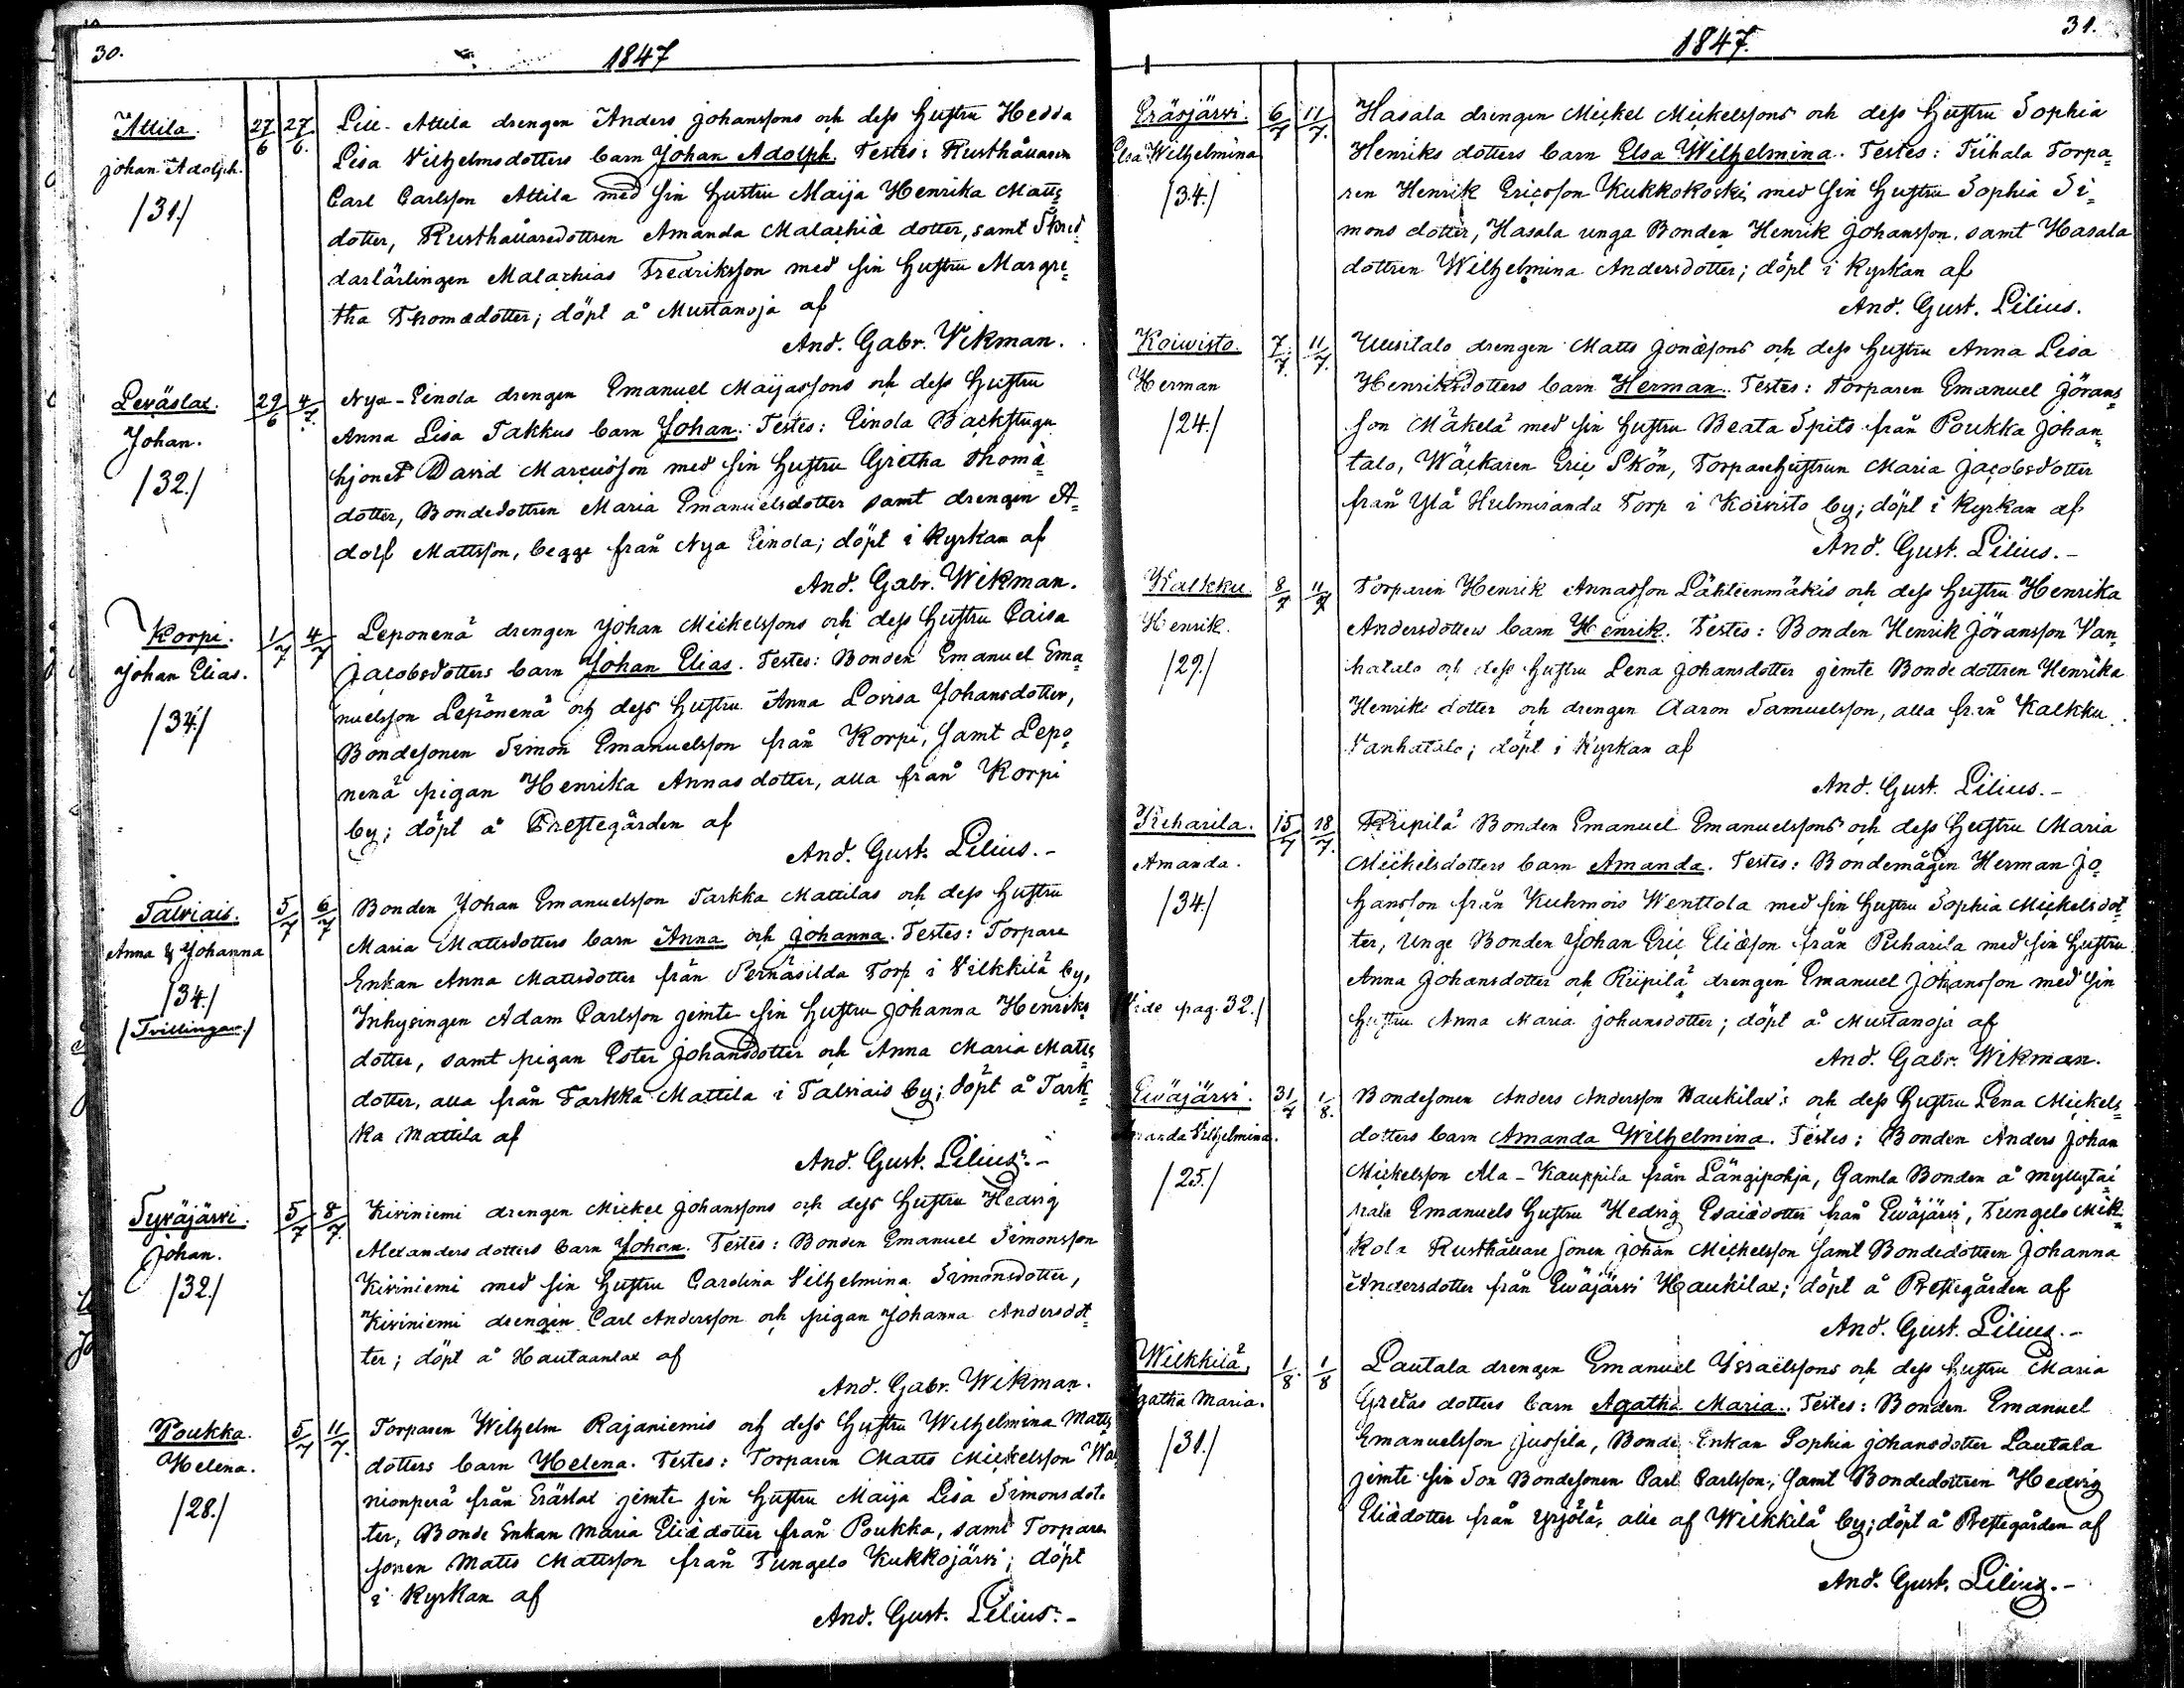 30.
1847
Attila.
Johan Adolph.
/31./
27/6
27/6.
Lill-Attila drengen Anders Johanssons och dess Hustru Hedda
Lisa Vilhelmsdotters barn Johan Adolph. Testes: Rusthållaren
Carl Carlsson Attila med sin Hustru Maija Henrika Matts
dotter, Rusthållaredottren Amanda Malachiæ dotter, samt Skräd
darlärlingen Malachias Fredriksson med sin Hustru Margre=
tha Thomædotter; döpt å Mustanoja af
And. Gabr. Wikman.
Leväslax.
Johan.
/32./
29/6
4/7.
Nya-Einola drengen Emanuel Maijassons och dess Hustru
Anna Lisa Takkus barn Johan. Testes: Einola Backstugu
hjonet David Marcusson med sin Hustru Gretha Thomæ
dotter, Bondedottren Maria Emanuelsdotter samt drengen A=
dolf Mattsson, begge från Nya Einola; döpt i Kyrkan af
And. Gabr. Wikman.
Korpi.
Johan Elias.
/34./
1/7
4/7
Leponenä drengen Johan Mickelssons och dess Hustru Caisa
Jacobsdotters barn Johan Elias. Testes: Bonden Emanuel Ema=
nuelsson Leponenä och dess Hustru Anna Lovisa Johansdotter,
Bondesonen Simon Emanuelsson från Korpi, samt Lepo=
nenä pigan Henrika Annasdotter, alla från Korpi
by; döpt å Prestegården af
And. Gust. Lilius.-
Talviais.
Anna & Johanna
/34./
/Tvillingar./
5/7
6/7
Bonden Johan Emanuelsson Tarkka Mattilas och dess Hustru
Maria Mattsdotters barn Anna och Johanna. Testes: Torpare
Enkan Anna Mattsdotter från Pernäsilda Torp i Vilkkilä by,
Inhysingen Adam Carlsson jemte sin Hustru Johanna Henriks
dotter, samt pigan Ester Johansdotter och Anna Maria Matts
dotter, alla från Tarkka-Mattila i Talviais by; döpt å Tark=
ka Mattila af
And. Gust. Lilius.-
Syväjärvi.
Johan.
/32./
5/7
8/7.
Kiviniemi drengen Mickel Johanssons och dess Hustru Hedvig
Alexandersdotters barn Johan. Testes: Bonden Emanuel Simonsson
Kiviniemi med sin Hustru Carolina Vilhelmina Simonsdotter,
Kiviniemi drengen Carl Andersson och pigan Johanna Andersdot
ter; döpt å Hautaanlax af
And. Gabr. Wikman.
Poukka.
Helena.
/28./
5/7
11/7.
Torparen Wilhelm Rajaniemis och dess Hustru Wilhelmina Matts
dotters barn Helena. Testes: Torparen Matts Mickelsson Wal
nionperä från Eräslax jemte sin Hustru Maija Lisa Simonsdot=
ter, Bonde Enkan Maria Eliædotter från Poukka, samt Torpare
sonen Matts Mattsson från Tungelo Kukkojärvi; döpt
i Kyrkan af
And. Gust. Lilius.-
1847.
31.
Eräsjärvi.
Elsa Wilhelmina
/34./
6/7
11/7.
Hasala drengen Mickel Mickelssons och dess Hustru Sophia
Henriksdotters barn Elsa Wilhelmina. Testes: Tiihala Torpa=
ren Henrik Ericsson Kukkokoski med sin Hustru Sophia Si=
mons dotter, Hasala unga Bonden Henrik Johansson, samt Hasala
dottren Wilhelmina Andersdotter; döpt i Kyrkan af
And. Gust. Lilius.
Koivisto.
Herman
/24./
7/7.
11/7.
Uusitalo drengen Matts Jonæsons och dess Hustru Anna Lisa
Henriksdotters barn Herman. Testes: Torparen Emanuel Jörans=
son Mäkelä med sin Hustru Beata Spits från Poukka Johan=
talo, Wäckaren Eric Skön, Torparehustrun Maria Jacobsdotter
från Ylä Hulmisanda Torp i Koivisto by; döpt i Kyrkan af
And. Gust. Lilius.-
Kalkku.
Henrik.
/29./
8/7
11/7
Torparen Henrik Annasson Lähteenmäkis och dess Hustru Henrika
Andersdotters barn Henrik. Testes: Bonden Henrik Jöransson Van=
hatalo och dess Hustru Lena Johansdotter jemte Bondedottren Henrika
Henriks dotter och drengen Aaron Samuelsson, alla från Kalkku
Vanhatalo; döpt i Kyrkan af
And. Gust. Lilius.-
Piiharila.
Amanda.
/34./
Vide pag. 32./
15/7
18/7.
Riipilä Bonden Emanuel Emanuelssons och dess Hustru Maria
Mickelsdotters barn Amanda. Testes: Bondemågen Herman Jo=
hansson från Kuhmois Wenttola med sin Hustru Sophia Mickelsdot
ter, Unge Bonden Johan Eric Eliæson från Piiharila med sin Hustru
Anna Johansdotter och Riipilä drengen Emanuel Johansson med sin
Hustru Anna Maria Johansdotter; döpt å Mustanoja af
And. Gabr. Wikman.
Eväjärvi.
Amanda Vilhelmina.
/25./
31/7
1/8.
Bondesonen Anders Andersson Haukilax's och dess Hustru Lena Mickels=
dotters barn Amanda Wilhelmina. Testes: Bonden Anders Johan
Mickelsson Ala-Kauppila från Längipohja, Gamla Bonden å
Emanuels Hustru Hedvig Esaiædotter från Eväjärvi, Tungelo Mik=
kola Rusthållare sonen Johan Mickelsson samt Bondedottren Johanna
Andersdotter från Eväjärvi Haukilax; döpt å Prestegården af
And. Gust. Lilius.-
Wilkkilä,
Agatha Maria.
/31./
1/8.
1/8
Lautala drengen Emanuel Israelssons och dess Hustru Maria
Gretas dotters barn Agatha Maria. Testes: Bonden Emanuel
Emanuelsson Jussila, Bonde Enkan Sophia Johansdotter Lautala
jemte sin Son Bondesonen Carl Carlsson, samt Bondedottren Hedvig
Eliædotter från Yrjölä, alle af Wilkkilä by; döpt å Prestegården af
And. Gust. Lilius.-